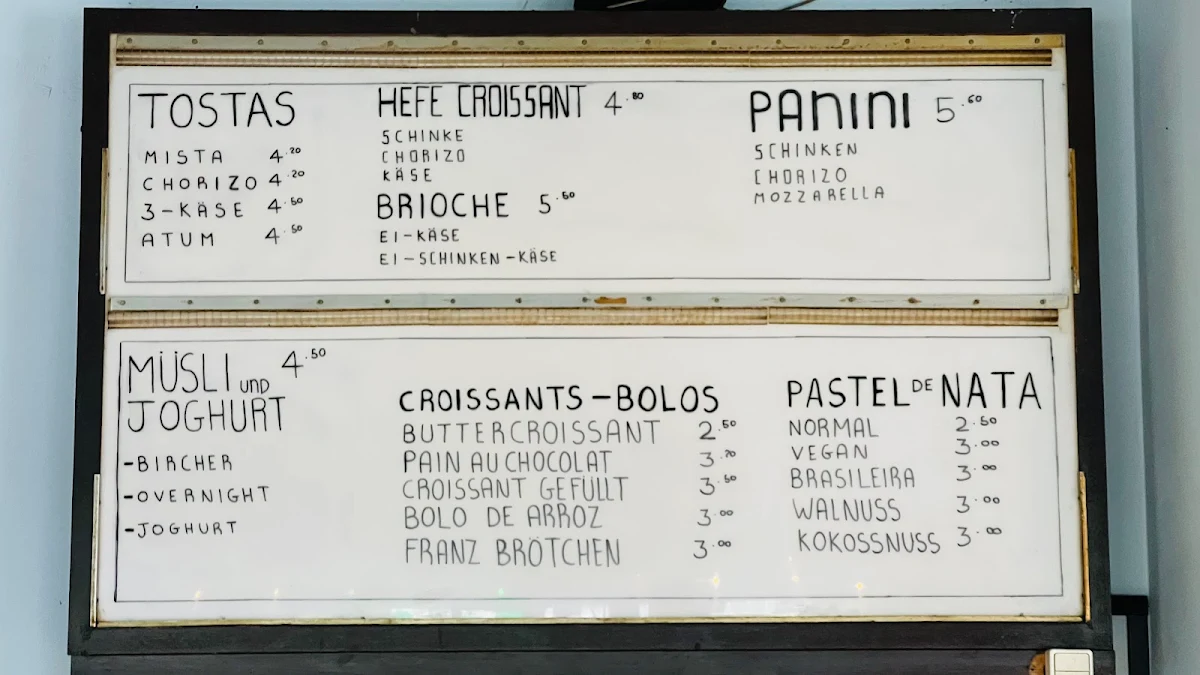 TOSTAS
MISTA 4.20
CHORIZO 4.20
3-KÄSE 4.50
ATUM 4.50
HEFE CROISSANT 4.80
SCHINKE
CHORIZO
KÄSE
BRIOCHE 5.60
EI-KÄSE
EI-SCHINKEN-KÄSE
PANINI 5.60
SCHINKEN
CHORIZO
MOZZARELLA
MÜSLI und 4.50
JOGHURT
-BIRCHER
-OVERNIGHT
-JOGHURT
CROISSANTS-BOLOS
BUTTERCROISSANT 2.50
PAIN AU CHOCOLAT
CROISSANT GEFÜLLT 3.50
BOLO DE ARROZ 3.00
FRANZ BRÖTCHEN 3.00
PASTEL DE NATA
NORMAL 2.50
VEGAN 3.00
BRASILEIRA 3.00
WALNUSS 3.00
KOKOSSNUSS 3.00